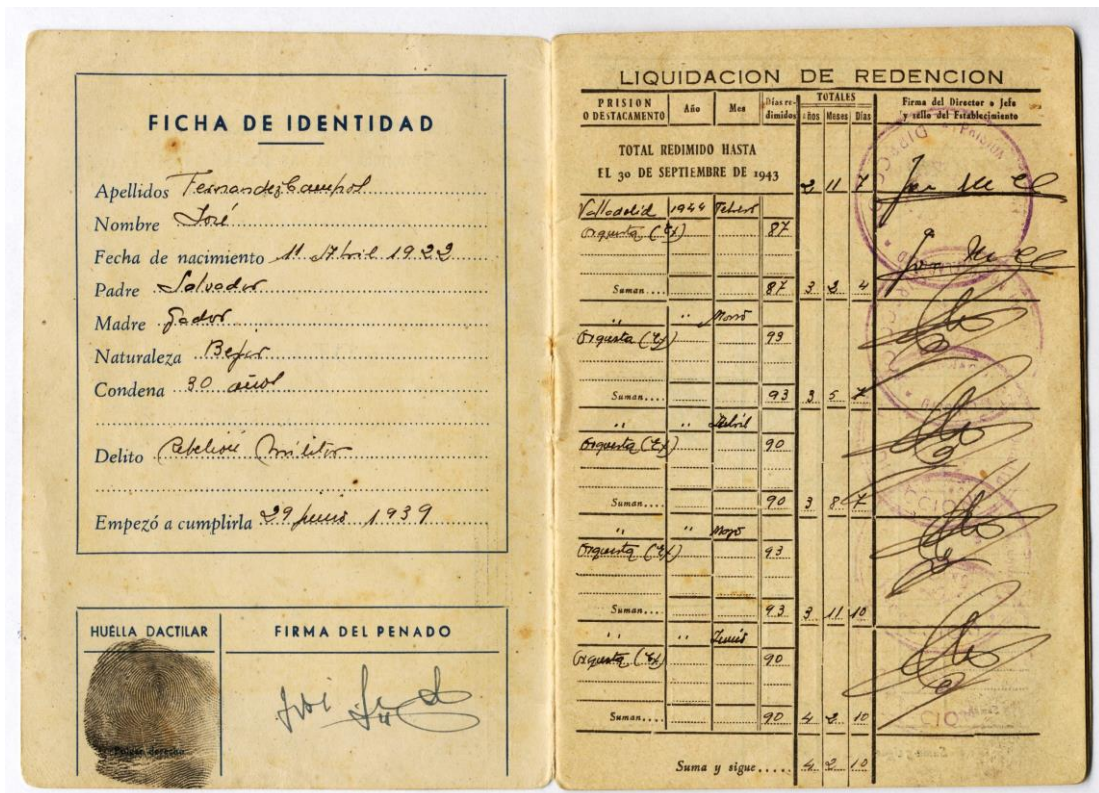 FICHA DE IDENTIDAD
Apellidos Fernandez Campos
Nombre José
Fecha de nacimiento 11 Abril 1922
Padre Salvador
Madre Gador
Naturaleza Bejar
Condena 30 años
Delito Rebelión Militar
Empezó a cumplirla 29 junio 1939
HUELLA DACTILAR
FIRMA DEL PENADO
Pulgar derecho
LIQUIDACION DE REDENCION
PRISION O DESTACAMENTO Año Mes Días redimidos TOTALES Años Meses Días Firma del Director o Jefe y sello del Establecimiento
TOTAL REDIMIDO HASTA
EL 30 DE SEPTIEMBRE DE 1943 2 11 7
Valladolid 1944 Febrero
Orquesta (Ex) 87
Suman.... 87 3 2 4
" " Marzo
Orquesta (Ex) 93
Suman.... 93 3 5 7
" " Abril
Orquesta (Ex) 90
Suman.... 90 3 8 7
" " Mayo
Orquesta (Ex) 93
Suman.... 93 3 11 10
" " Junio
Orquesta (Ex) 90
Suman.... 90 4 2 10
Suma y sigue..... 4 2 10